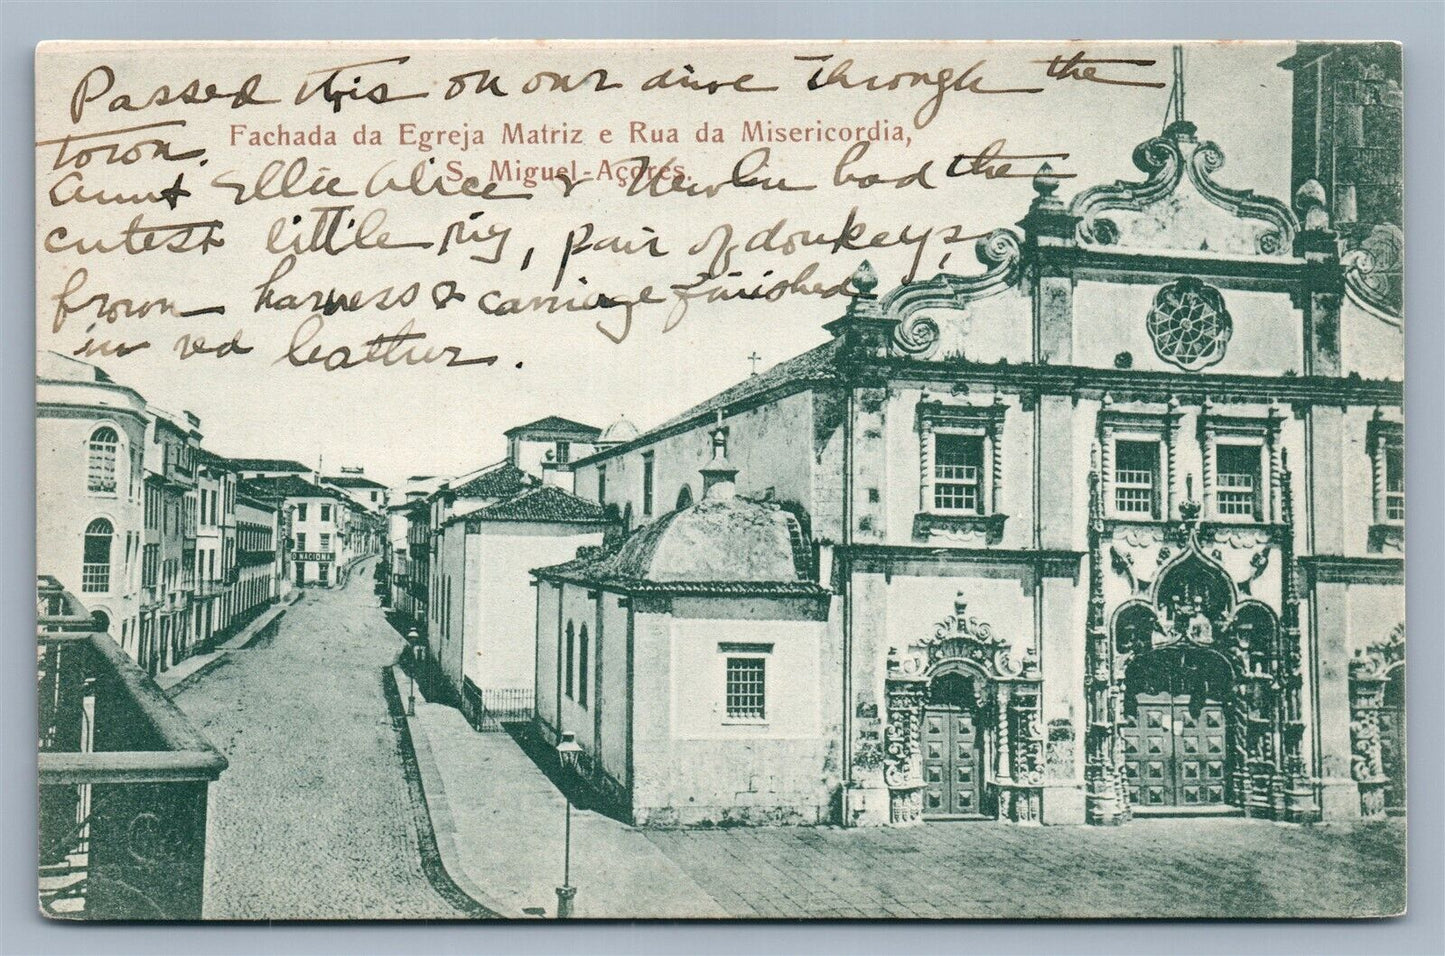 Passed this on our drive through the
town.
Fachada da Egreja Matriz e Rua da Misericordia,
S. Miguel-Açores.
Aunt Ellie Alice & had the
cutest little rig, pair of donkeys,
brown harness & carriage finished
in red leather.
O NACIONAL